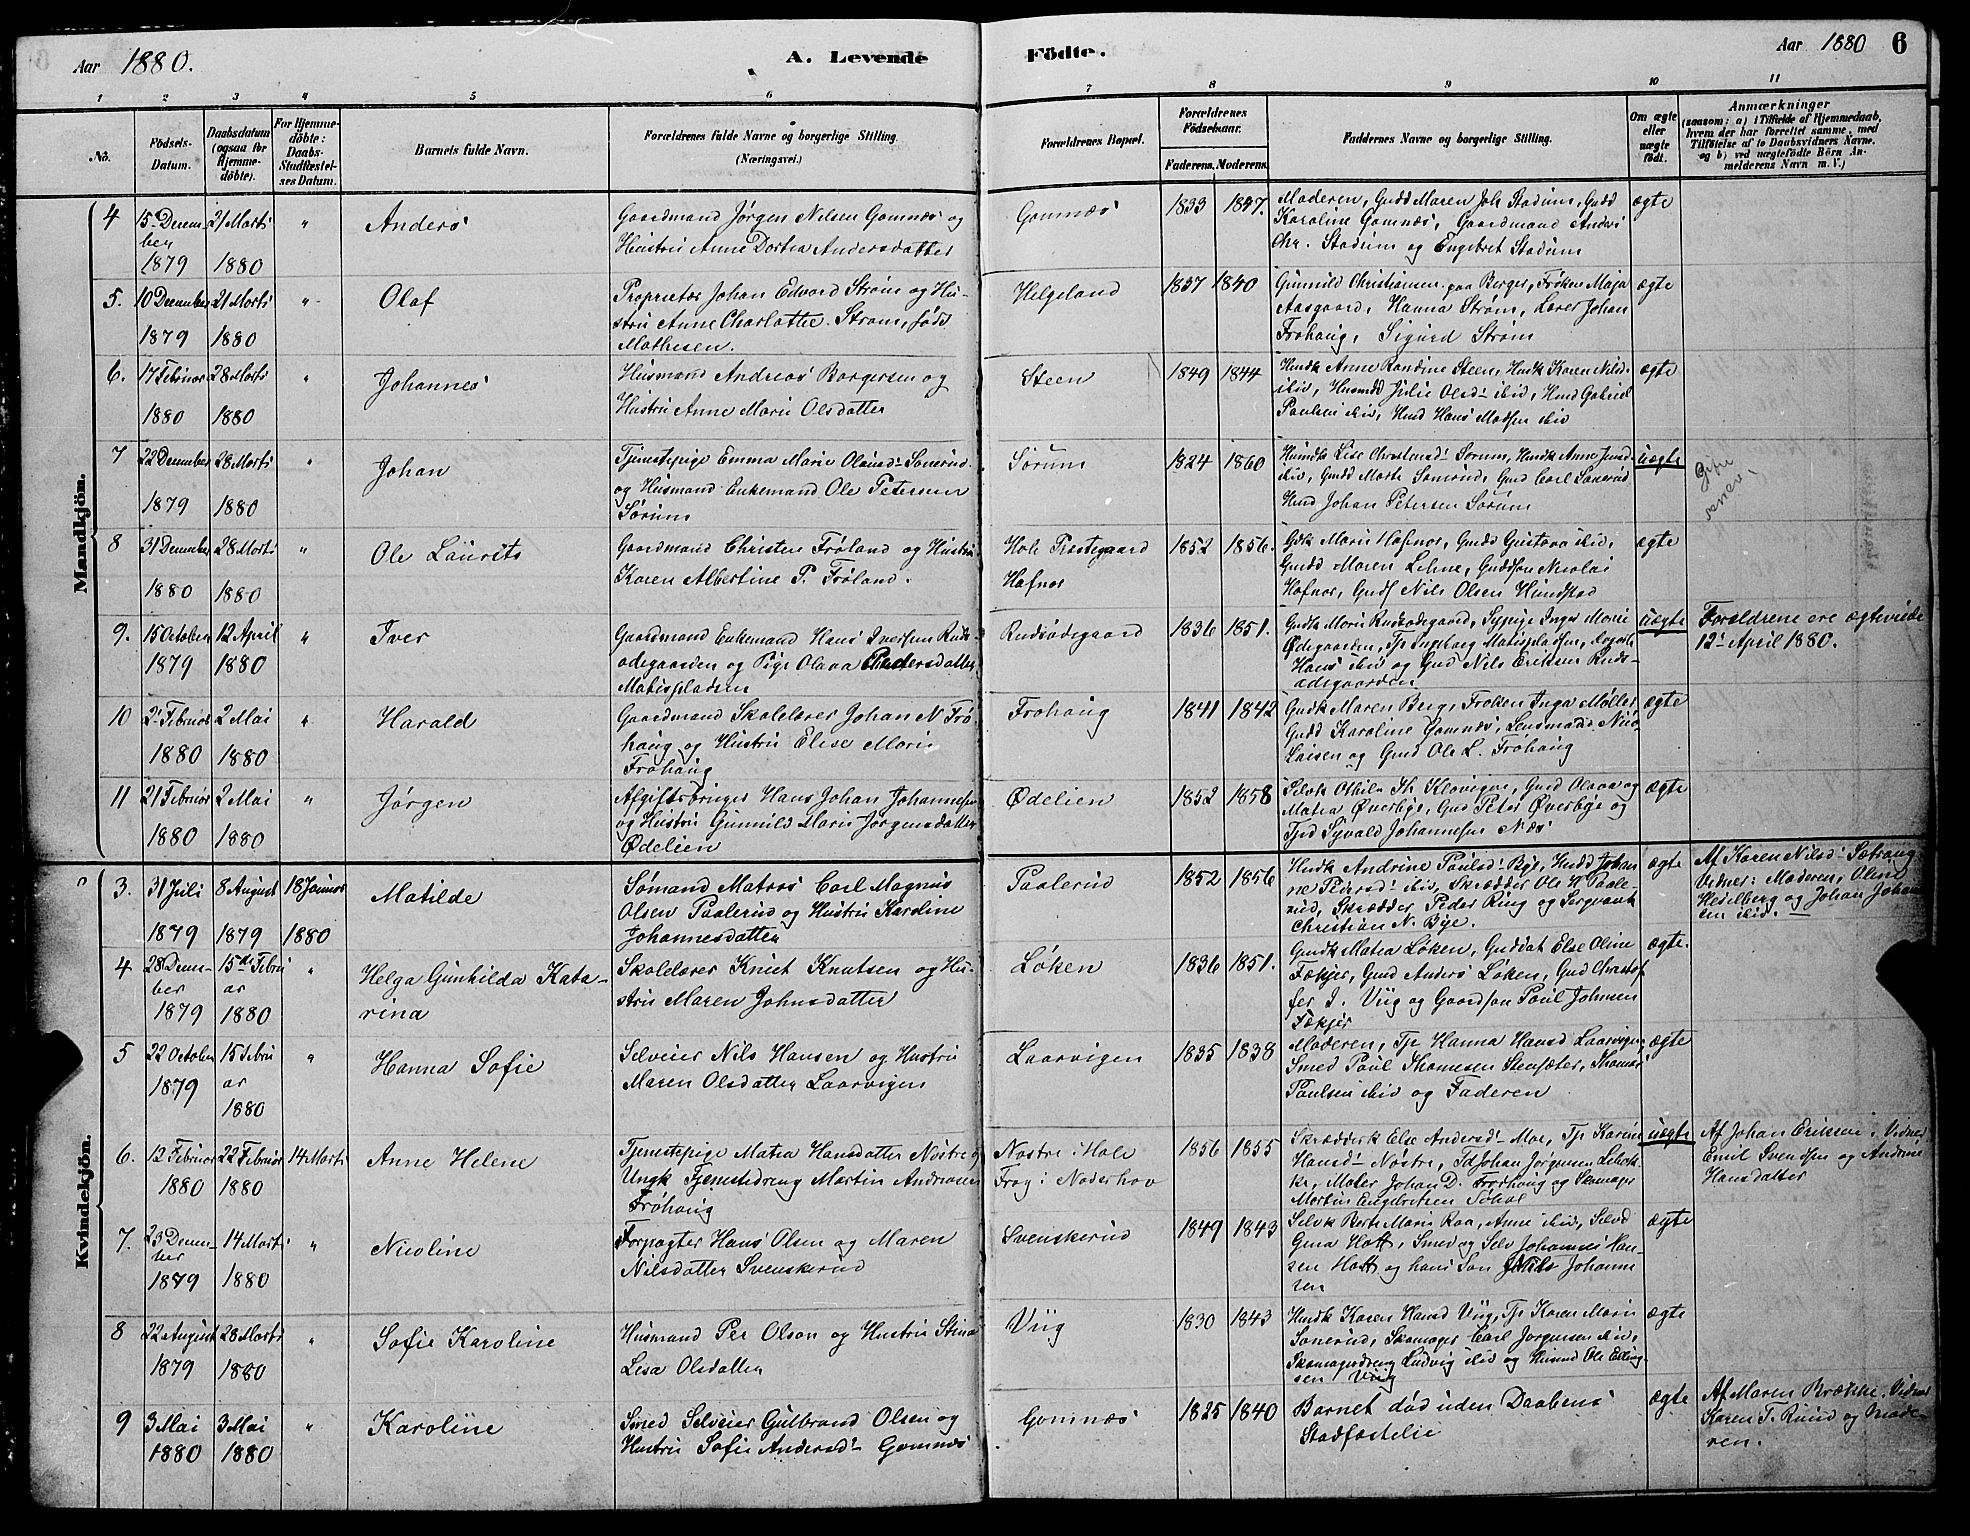 Aar 1880.
A. Levende
Födte.
Aar 1880 6
1 2 3 4 5 6 7 8 9 10 11
No.
Födsels-
Datum.
Daabsdatum
(ogsaa for
Hjemme-
döbte).
For Hjemme-
döbte:
Daabs-
Stadfæstel-
ses Datum.
Barnets fulde Navn.
Forældrenes fulde Navne og borgerlige Stilling.
(Næringsvei.)
Forældrenes Bopæl.
Forældrenes
Födselsaar.
Faderens. Moderens.
Faddernes Navne og borgerlige Stilling.
Om ægte
eller
uægte
födt.
Anmærkninger
(saasom: a) i Tilfælde af Hjemmedaab,
hvem der har forrettet samme, med
Tilföielse af to Daabsvidners Navne,
og b) ved uægtefödte Börn An-
melderens Navn m. V.)
Mandkjön.
4 15 Decem-
ber
1879
21 Marts
1880
"
Anders
Gaardmand Jørgen Nilsen Gomnæs og
Hustru Anne Dortea Andersdatter
Gomnæs
1833 1847.
Moderen, Gudd Maren Joh Stadum, Gudd
Karoline Gomnæs, Gaardmand Anders
Chr. Stadum og Engebret Stadum
ægte
5. 10 December
1879
21 Marts
1880
"
Olaf
Proprietær Johan Edvard Strøm og Hu-
stru Anne Charlotte Strøm, født
Mathesen.
Helgeland
1837 1840
Gunnild Christiansen paa Berger, Frøken Maja
Aasgaard, Hanna Strøm, Lærer Johan
Frøhaug, Sigurd Strøm
ægte
6. 17 Februar
1880
28 Marts
1880
"
Johannes
Husmand Andreas Borgersen og
Hustru Anne Marie Olsdatter
Steen
1849 1844
Husk Anne Randine Steen, Husk Karen Nilsd
ibid, Husmdd Julie Olsd- ibid, Husd Gabriel
Paulsen ibid, Husd Hans Madsen ibid
ægte
7 22 December
1879
28 Marts
1880
"
Johan
Tjenestepige Emma Marie Olausd- Sonerud
og Husmand Enkemand Ole Petersen
Sørum
Sørum
1824 1860
Lise Sørum, Husk Anne
ibid, Gudd Marte Sonerud, Gmd Carl Sonerud
Husd Johan Petersen Sørum
uægte
8 31 December
1880
28 Marts
1880
"
Ole Laurits
Gaardmand Christen Frøland og Hustru
Karen Albertine P. Frøland.
Hole Præstegaard
Hafnor
1852 1856.
Gdk Marie Hafnor, Gudd Gustava ibid,
Gudd Maren Lehne, Gudssøn Nicolai
Hafnor, Guds Nils Olsen Hundstad
ægte
9. 15 October
1879
12 April
1880
"
Iver
Gaardmand Enkemand Hans Iversen Ruds-
ødegaarden og Pige Olava Pedersdatter
Matispladsen
Rudsødegaard
1836 1851.
Gudk Marie Rudsødegaard, Sypige Inger Marie
Ødegaarden, Tp Ingeborg Matispladsen,
Hans ibid og Gmd Nils Eriksen Ruds-
ødegaarden
uægte
Forældrene ere ægteviede
12- April 1880.
10 2- Februar
1880
2 Mai
1880
"
Harald
Gaardmand Skolelærer Johan N Frø
haug og Hustru Elise Marie
Frøhaug
Frohaug
1841 1842
Gudk Maren Berg, Frøken Inga Møller
Gudd Karoline Gomnæs, Lensmand
Laisen og Gmd Ole L. Frøhaug
ægte
11 21 Februar
1880
2 Mai
1880
"
Jørgen
Afgiftsbruger Hans Johan Johannesen
og Hustru Gunnild Marie Jørgensdatter
Ødelien
Ødelien
1852 1858
Selvk Othilie Th Klovigen, Gmd Olava og
Matea Øverbye, Gmd Peter Øverbye og
Tjrd Syvald Johannesen Næs
ægte
Kvindekjön.
3. 31 Juli
1879
8 August
1879
18 Januar
1880
Matilde
Sømand Matros Carl Magnus
Olsen Paalerud og Hustru Karoline
Johannesdatter
Paalerud
1852 1856
Husk Andrine Paulsd- Bye, Husd Johan
ne Pedersd- ibid, Skrædder Ole H Paale-
rud, Skrædder Peder Ring og Sergeant
Christian N. Bye.
ægte
Af Karen Nilsd- Sætrang.
Vidner: Moderen, Oline
Heselberg og Johan Johann
sen ibid.
4 28 Decem-
ber
1879
15de Febru
ar
1880
"
Helga Gunhilda Kata-
rina
Skolelærer Knut Knutsen og Hu-
stru Maren Johnsdatter
Løken
1836 1851.
Gudk Matea Løken, Guddat Else Oline
Fækjer, Gmd Anders Løken, Gmd Christof
fer J. Viig og Gaardsøn Paul Johnsen
Fækjer
ægte.
5 22 October
1879
15 Febru
ar
1880
"
Hanna Sofie
Selveier Nils Hansen og Hustru
Maren Olsdatter Laarvigen
Laarvigen
1835 1838
Moderen, Tp Hanna Hansd Laarvigen,
Smed Paul Thomesen Stensæter, Thomas
Paulsen ibid og Faderen
ægte
6. 12 Februar
1880
22 Februar
1880
14 Marts
Anne Helene
Tjenestepige Matea Hansdatter Nøstre og
Ungk Tjenestedreng Martin Andreassen
Frøhaug
Nøstre i Hole
Frog i Noderhov
1856 1855
Skrædderk Else Andersd- Moe, Tp Karine
Hansd- Nøstre, Td Johan Jørgensen
Maler Johan D. Frøhaug og Skomager
Martin Engebretsen
uægte
Af Johan Eriksen: Vidner
Emil Svendsen og Andrine
Hansdatter
7. 23 Decem-
ber
1879
14 Marts
1880
"
Nicoline
Forpagter Hans Olsen og Maren
Nilsdatter Svenskerud
Svenskerud
1849 1843
Selvk Berte Marie Raa, Anne ibid, Selvd
Gina Hott, Smed og Selv Johannes Han-
sen Hott og hans Søn Nils Johanne
sen
ægte
8 22 August
1879
28 Marts
1880
"
Sofie Karoline
Husmand Per Olson og Hustru Stina
Lisa Olsdatter
Viig
1830 1843
Husk Karen Hansd Viig, Tp Karen Marie
Sonerud, Skomager Carl Jørgensen ibid,
Skomagerdreng Ludvig ibid og Husmd Ole Elling-
sen Viig
ægte
9 3 Mai
1880
3 Mai
1880
"
Karoline
Smed Selveier Gulbrand Olsen og
Hustru Sofie Andersd- Gomnæs
Gomnæs
1825 1840
Barnet død uden Daabens
Stadfæstelse
ægte
Af Maren Brække. Vidner
Karen T. Rund og Mode-
ren.